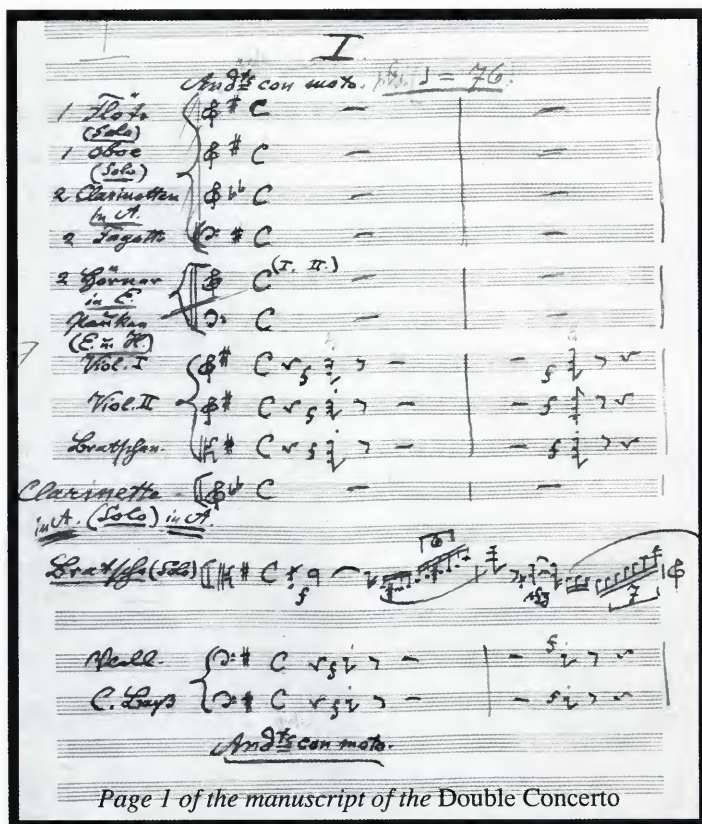 I
And^te con moto. ♩ = 76.
1 Flöte
(Solo)
1 Oboe
(Solo)
2 Clarinetten
in A.
2 Fagotte
2 Hörner
in E.
(I. II.)
Pauken
(E. u. H.)
Viol. I
Viol. II
Bratschen.
Clarinette
in A. (Solo) in A.
Bratsche (Solo)
6
7
Vcell.
C. Baß
And^te con moto.
Page 1 of the manuscript of the Double Concerto